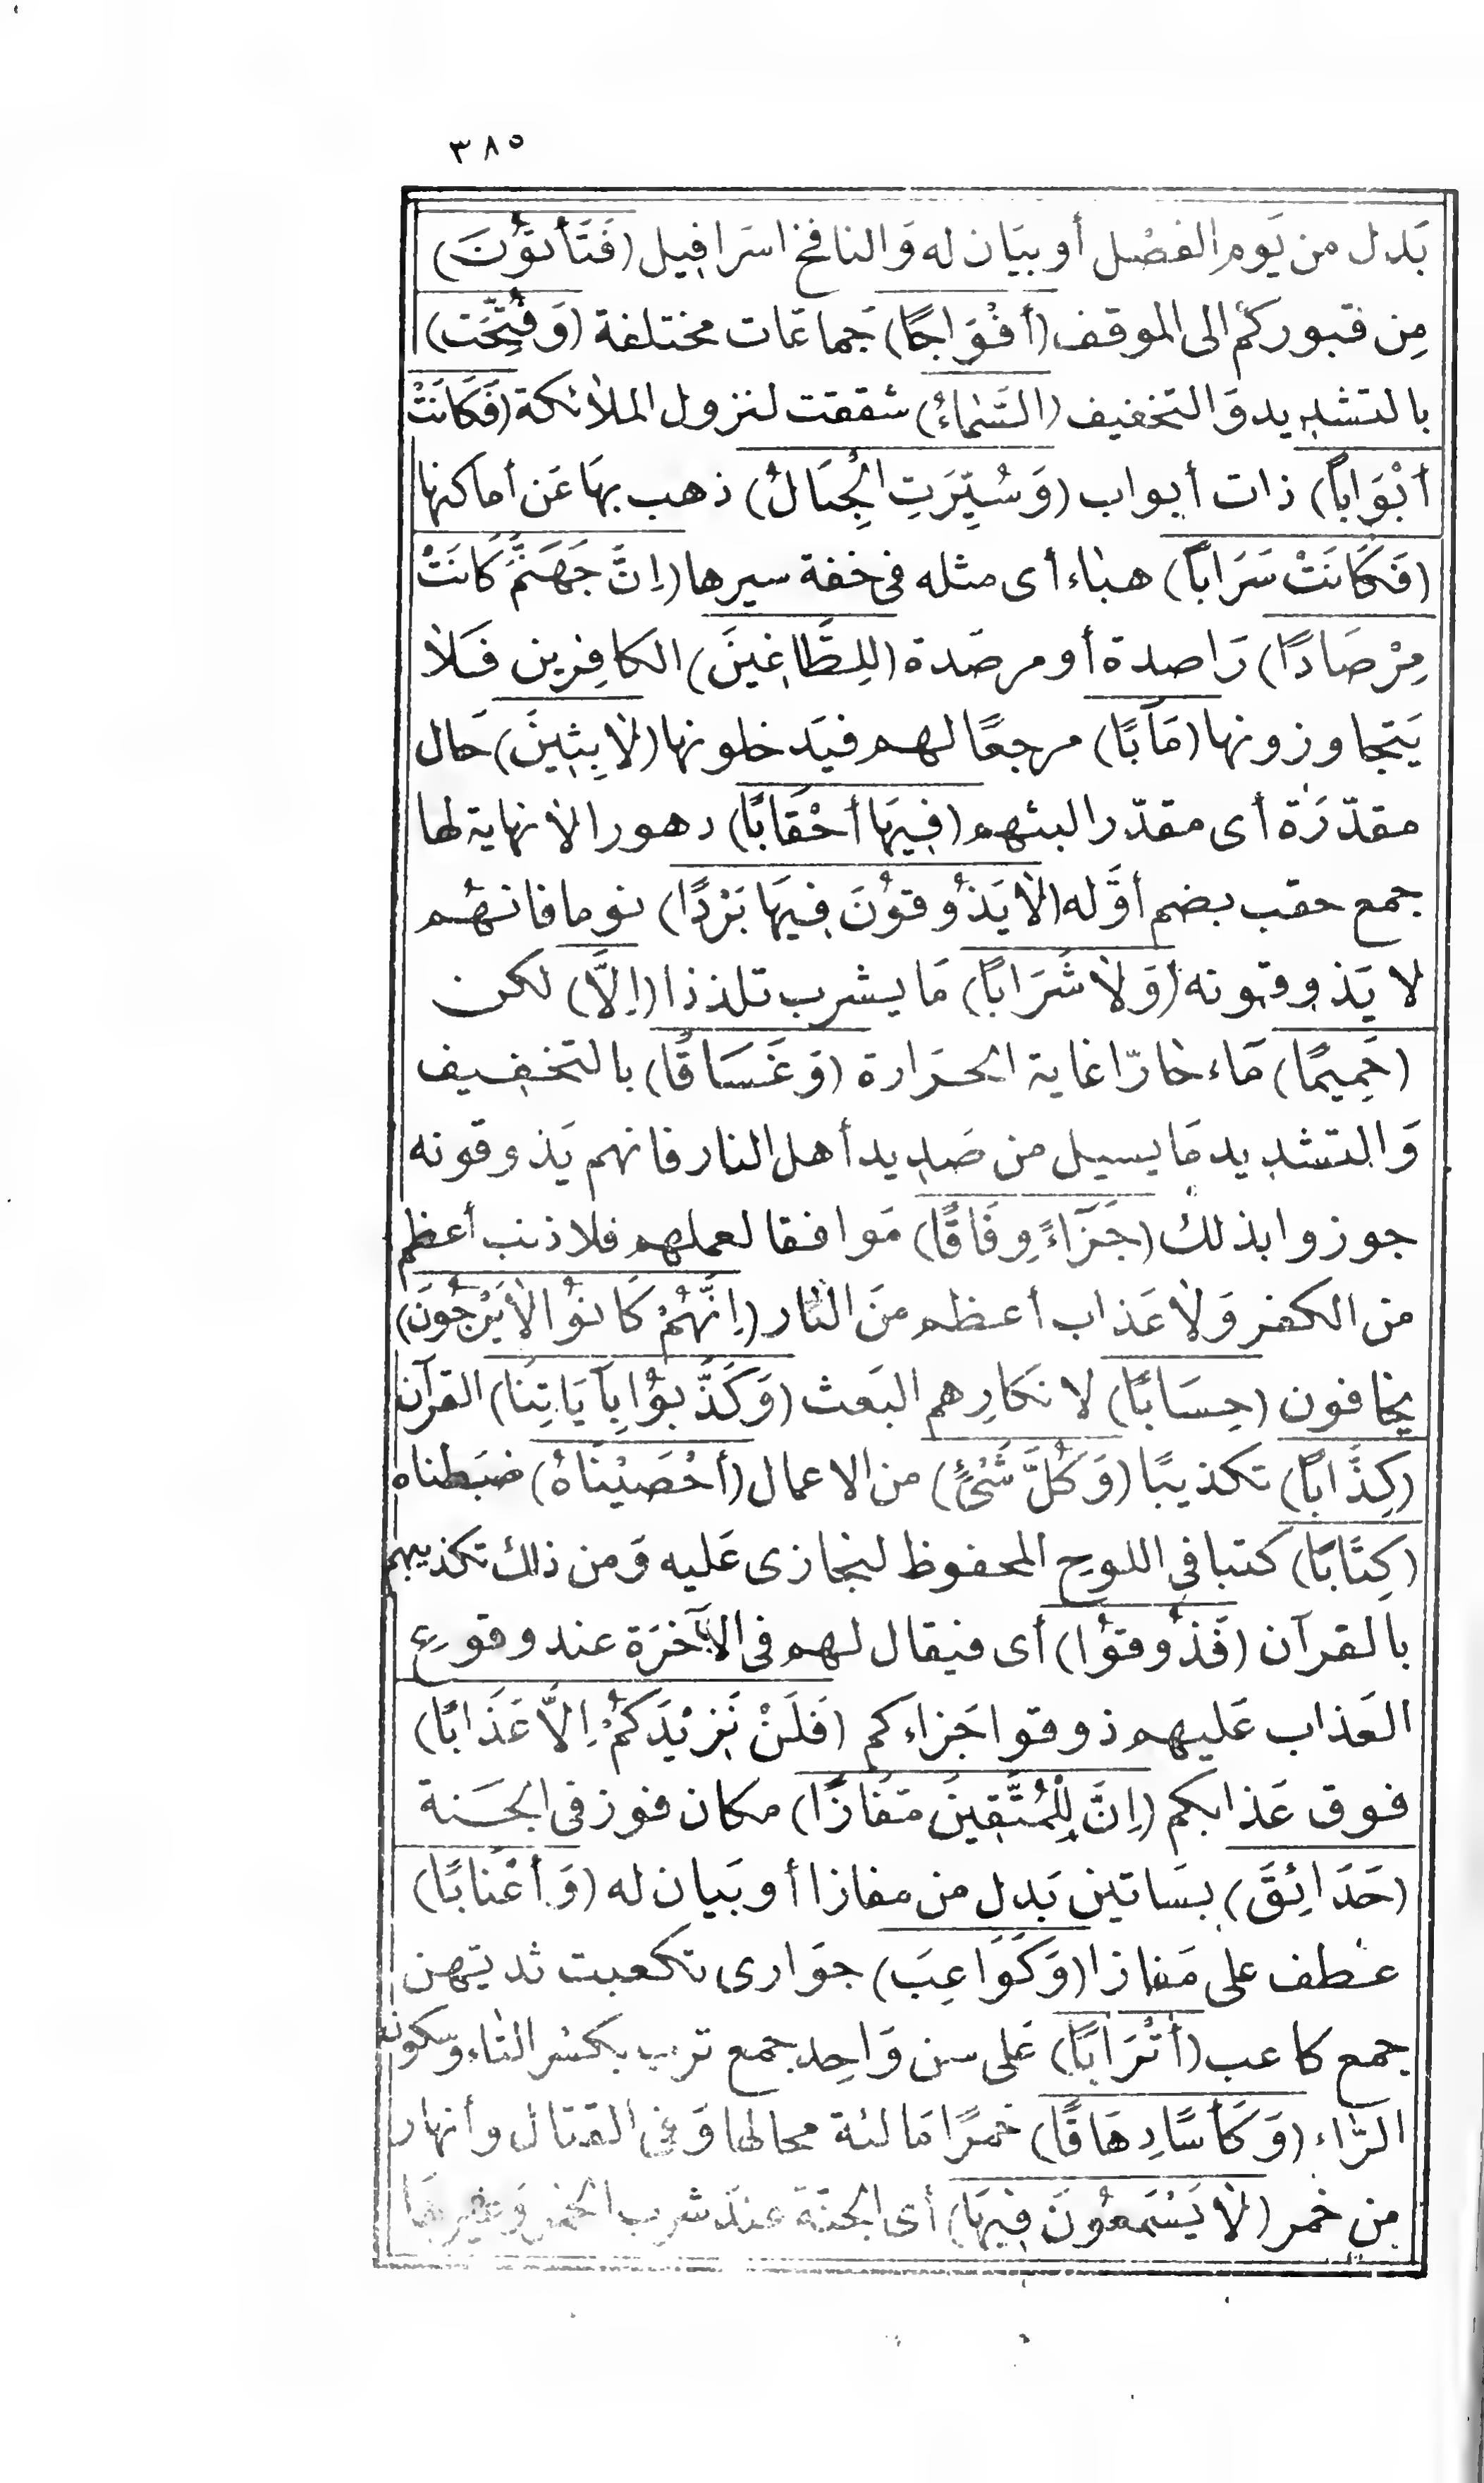 ٣٨٥
بَدل من يَوم الفصْل أو بيَان له وَالنافخ اسرَافِيل (فَتَأتوُنَ)
مِن قبوركُم الى الموقف (أفْوَاجًا) جَماعَات مختلفة (وَفُتِّحَت)
بالتشديد وَالتخفيف (السَّمٰاءُ) شققت لنزول الملائكة (فَكَانَتْ
أبْوَاباً) ذات أبواب (وَسُيِّرَتِ الْجِبَالُ) ذهب بهَا عَن أماكنها
(فَكَانَتْ سَرَاباً) هباء أى مثله فى خفة سيرها (اِنَّ جَهَنَّمَ كَانَتْ
مِرْصَادًا) رَاصدة أو مرصَدة (لِلطَّاغِينَ) الكافِرين فَلا
يَتجاوزونها (مَآبًا) مرجعًا لهم فيَدخلونها (لاٰبِثِينَ) حَال
مقدّرَة أى مقدّرا لبثهم (فِيهَا أحْقَابًا) دهورا لا نهاية لها
جمع حقب بضم أوَّله (لاٰ يَذُوقوُنَ فِيهَا بَرْدًا) نوما فانهُم
لا يَذوقونه (وَلاٰ شَرَابًا) مَا يشرب تلذذا (اِلَّا) لكن
(حَمِيمًا) مَاء حَارّا غاية الحرَارة (وَغَسَاقًا) بالتخفيف
وَالتشديد مَا يسيل من صَديد أهل النار فانهم يَذوقونه
جوزوا بذلك (جَزَآءً وِفَاقًا) مَوافقا لعملهم فلا ذنب أعظم
من الكفر وَلاٰ عَذاب أعظم منَ النّار (اِنَّهُمْ كَانوُا لاٰ يَرْجُونَ)
يخافون (حِسَابًا) لانكارِهم البَعث (وَكَذَّبوُا بِآيَاتِنَا) القرآن
(كِذَّاباً) تكذيبًا (وَكُلَّ شَيْئٍ) من الاعمال (أحْصَيْنَاهُ) ضبَطناه
(كِتَابًا) كتبا فى اللوح المحفوظ لنجازى عَليه وَمن ذلك تكذيبهم
بالقرآن (فَذُوقوُا) أى فيقال لهم فى الآخرَة عند وقوع
العَذاب عَليهم ذوقوا جَزاءكم (فَلَنْ نَزِيْدَكُمْ اِلاَّ عَذَابًا)
فوق عَذابكم (اِنَّ لِلْمُتَّقِينَ مَفَازًا) مكان فوز فى الجَنة
(حَدَائِقَ) بسَاتين بَدل من مفازا أو بَيان له (وَأعْنَابًا)
عطف على مَفازا (وَكَوَاعِبَ) جوَارى تكعبت ثديّهن
جمع كاعب (أتْرَابًا) عَلى سن وَاحِد جمع ترب بكسْر التاء وسكون
الرّاء (وَكَأسًا دِهَاقًا) خمرًا مَالئة محالها وَفى القتال وأنهار
من خمر (لاٰ يَسْمَعُونَ فِيهَا) أى الجنّة عندَ شرب الخمر وَغيرهَا